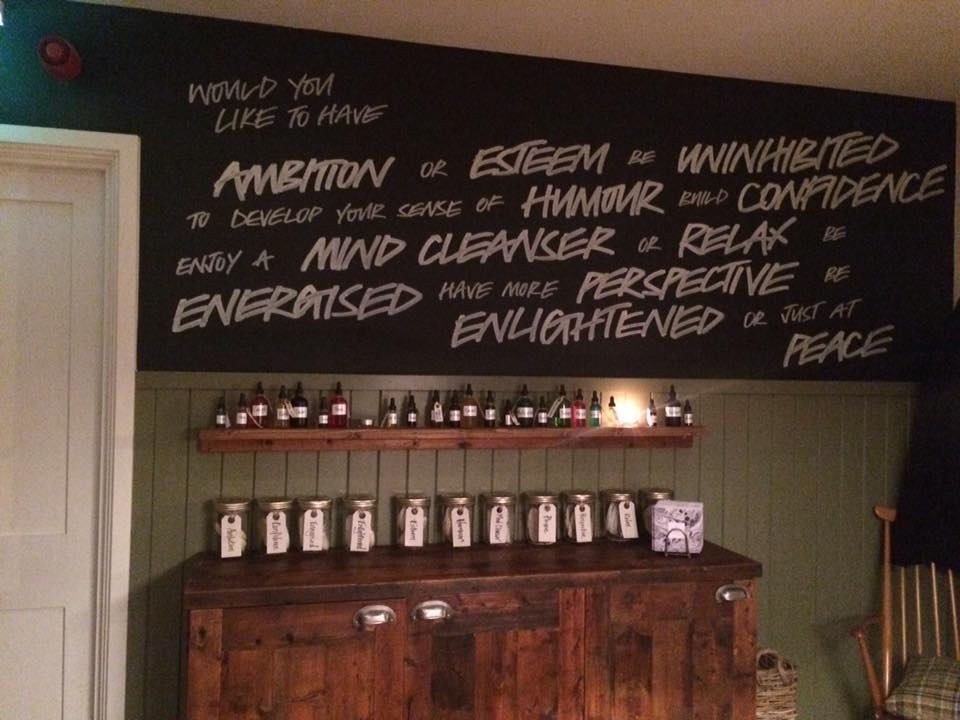 WOULD YOU
LIKE TO HAVE
AMBITION OR ESTEEM BE UNINHIBITED
TO DEVELOP YOUR SENSE OF HUMOUR BUILD CONFIDENCE
ENJOY A MIND CLEANSER OR RELAX BE
ENERGISED HAVE MORE PERSPECTIVE BE
ENLIGHTENED OR JUST AT
PEACE
Ambition
Confidence
Energised
Enlightened
Esteem
Humour
Mind Cleanser
Perspective
Relax